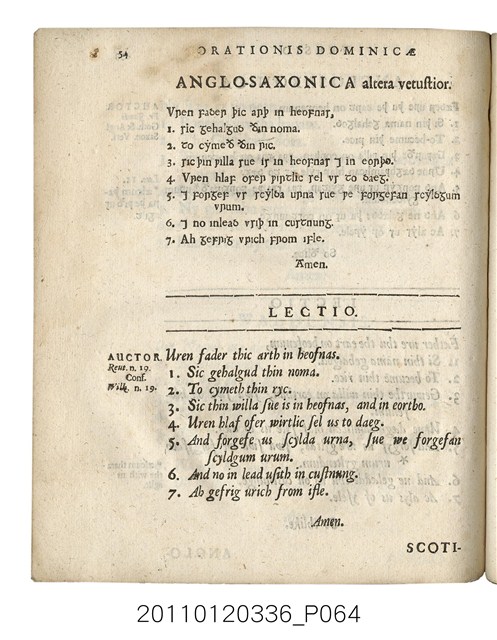 54 ORATIONIS DOMINICÆ
ANGLO-SAXONICA altera vetustior.
Uꞃen ꝼaꝺeꞃ þic aꞃþ in heoꝼnaꞅ,
1. ꞅic gehalguꝺ ðin noma.
2. to cymeð ðin ꞃic.
3. ꞅic þin ƿilla ꞅue iꞅ in heoꝼnaꞅ ⁊ in eoꞃþo.
4. Uꞃen hlaꝼ oꝼeꞃ ƿiꞃtlic ꞅel uꞅ to ꝺaeg.
5. ⁊ ꝼoꞃgeꝼ uꞅ ꞅcylꝺa uꞃna ꞅue ƿe ꝼoꞃgeꝼan ꞅcylꝺgum
uꞃum.
6. ⁊ no inleaꝺ uꞅiþ in cuꞅtnung.
7. Ah geꝼꞃig uꞃich ꝼꞃom iꝼle.
Amen.
LECTIO.
AUCTOR. Uren fader thic arth in heofnas.
Reut. n. 19. 1. Sic gehalgud thin noma.
Conf.
Wilk. n. 19. 2. To cymeth thin ryc.
3. Sic thin willa sue is in heofnas, and in eortho.
4. Uren hlaf ofer wirtlic sel us to daeg.
5. And forgefe us scylda urna, sue we forgefan
scyldgum urum.
6. And no in lead usith in custnung.
7. Ah gefrig urich from isle.
Amen.
SCOTI-
20110120336_P064